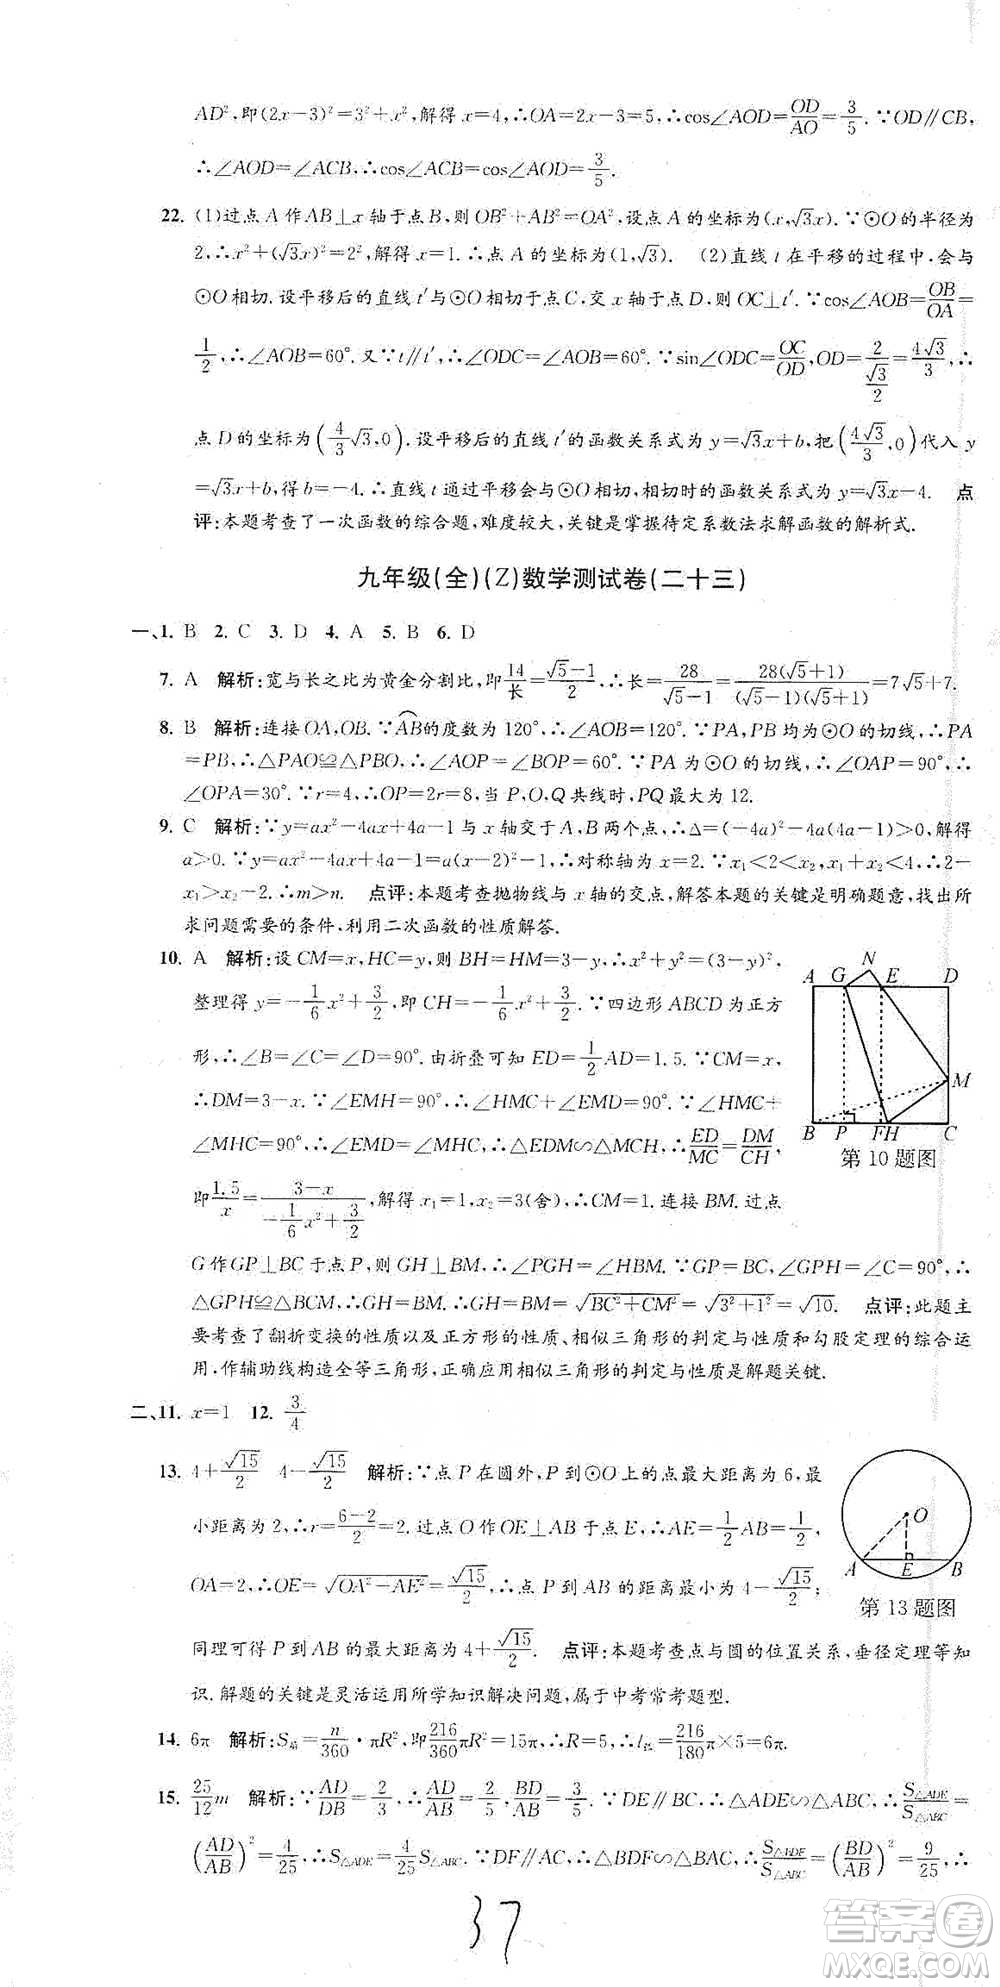 AD²,即(2x-3)²=3²+x²,解得x=4,∴OA=2x-3=5,∴cos∠AOD=OD/AO=3/5.∵OD∥CB,
∴∠AOD=∠ACB,∴cos∠ACB=cos∠AOD=3/5.
22. (1)过点A作AB⊥x轴于点B,则OB²+AB²=OA²,设点A的坐标为(x,√3x).∵⊙O的半径为
2,∴x²+(√3x)²=2²,解得x=1.∴点A的坐标为(1,√3). (2)直线t在平移的过程中,会与
⊙O相切.设平移后的直线t′与⊙O相切于点C,交x轴于点D,则OC⊥t′.∵cos∠AOB=OB/OA=
1/2,∴∠AOB=60°.又∵t∥t′,∴∠ODC=∠AOB=60°.∵sin∠ODC=OC/OD,OD=2/(√3/2)=4√3/3,∴
点D的坐标为(4/3√3,0).设平移后的直线t′的函数关系式为y=√3x+b,把(4√3/3,0)代入y
=√3x+b,得b=-4.∴直线t通过平移会与⊙O相切,相切时的函数关系式为y=√3x-4. 点
评:本题考查了一次函数的综合题,难度较大,关键是掌握待定系数法求解函数的解析式.
九年级(全)(Z)数学测试卷(二十三)
一、1. B 2. C 3. D 4. A 5. B 6. D
7. A 解析:宽与长之比为黄金分割比,即14/长=(√5-1)/2,∴长=28/(√5-1)=28(√5+1)/((√5-1)(√5+1))=7√5+7.
8. B 解析:连接OA,OB.∵AB的度数为120°,∴∠AOB=120°.∵PA,PB均为⊙O的切线,∴PA
=PB,∴△PAO≌△PBO,∴∠AOP=∠BOP=60°.∵PA为⊙O的切线,∴∠OAP=90°,∴
∠OPA=30°.∵r=4,∴OP=2r=8,当P,O,Q共线时,PQ最大为12.
9. C 解析:∵y=ax²-4ax+4a-1与x轴交于A,B两个点,∴Δ=(-4a)²-4a(4a-1)>0,解得
a>0.∵y=ax²-4ax+4a-1=a(x-2)²-1,∴对称轴为x=2.∵x₁<2<x₂,x₁+x₂<4,∴2-
x₁>x₂-2.∴m>n. 点评:本题考查抛物线与x轴的交点,解答本题的关键是明确题意,找出所
求问题需要的条件,利用二次函数的性质解答.
10. A 解析:设CM=x,HC=y,则BH=HM=3-y,∴x²+y²=(3-y)²,
整理得y=-1/6x²+3/2,即CH=-1/6x²+3/2.∵四边形ABCD为正方
形,∴∠B=∠C=∠D=90°.由折叠可知ED=1/2AD=1.5.∵CM=x,
∴DM=3-x.∵∠EMH=90°,∴∠EMD+∠HMC=90°.∵∠HMC+
∠MHC=90°,∴∠EMD=∠MHC,∴△EDM∽△MCH,∴ED/MC=DM/CH,
即1.5/x=(3-x)/(-1/6x²+3/2),解得x₁=1,x₂=3(舍),∴CM=1.连接BM.过点
A G N E D M B P F H C
第10题图
G作GP⊥BC于点P,∴GH⊥BM,∴∠PGH=∠HBM.∵GP=BC,∠GPH=∠C=90°,∴
△GPH≌△BCM,∴GH=BM.∴GH=BM=√(BC²+CM²)=√(3²+1²)=√10. 点评:此题主
要考查了翻折变换的性质以及正方形的性质、相似三角形的判定与性质和勾股定理的综合运
用,作辅助线构造全等三角形,正确应用相似三角形的判定与性质是解题关键.
二、11. x=1 12. 3/4
13. 4+√15/2 4-√15/2 解析:∵点P在圆外,P到⊙O的最大距离为6,最
小距离为2,∴r=(6-2)/2=2.过点O作OE⊥AB于点E,∴AE=1/2AB=1/2,
OA=2,∴OE=√(OA²-AE²)=√15/2,∴点P到AB的距离最小为4-√15/2;
O A E B
第13题图
同理可得P到AB的最大距离为4+√15/2. 点评:本题考查点与圆的位置关系,垂径定理等知
识.解题的关键是灵活运用所学知识解决问题,属于中考常考题型.
14. 6π 解析:S扇=n/360·πR²,即216/360πR²=15π,∴R=5,∴l弧=216/180π×5=6π.
15. 25/12m 解析:∵AD/DB=2/3,∴AD/AB=2/5,BD/AB=3/5.∵DE∥BC,∴△ADE∽△ABC,∴S△ADE/S△ABC=
(AD/AB)²=4/25,∴S△ADE=4/25S△ABC.∵DF∥AC,∴△BDF∽△BAC,∴S△BDF/S△ABC=(BD/AB)²=9/25,∴
37
答案圈
MXQE.COM